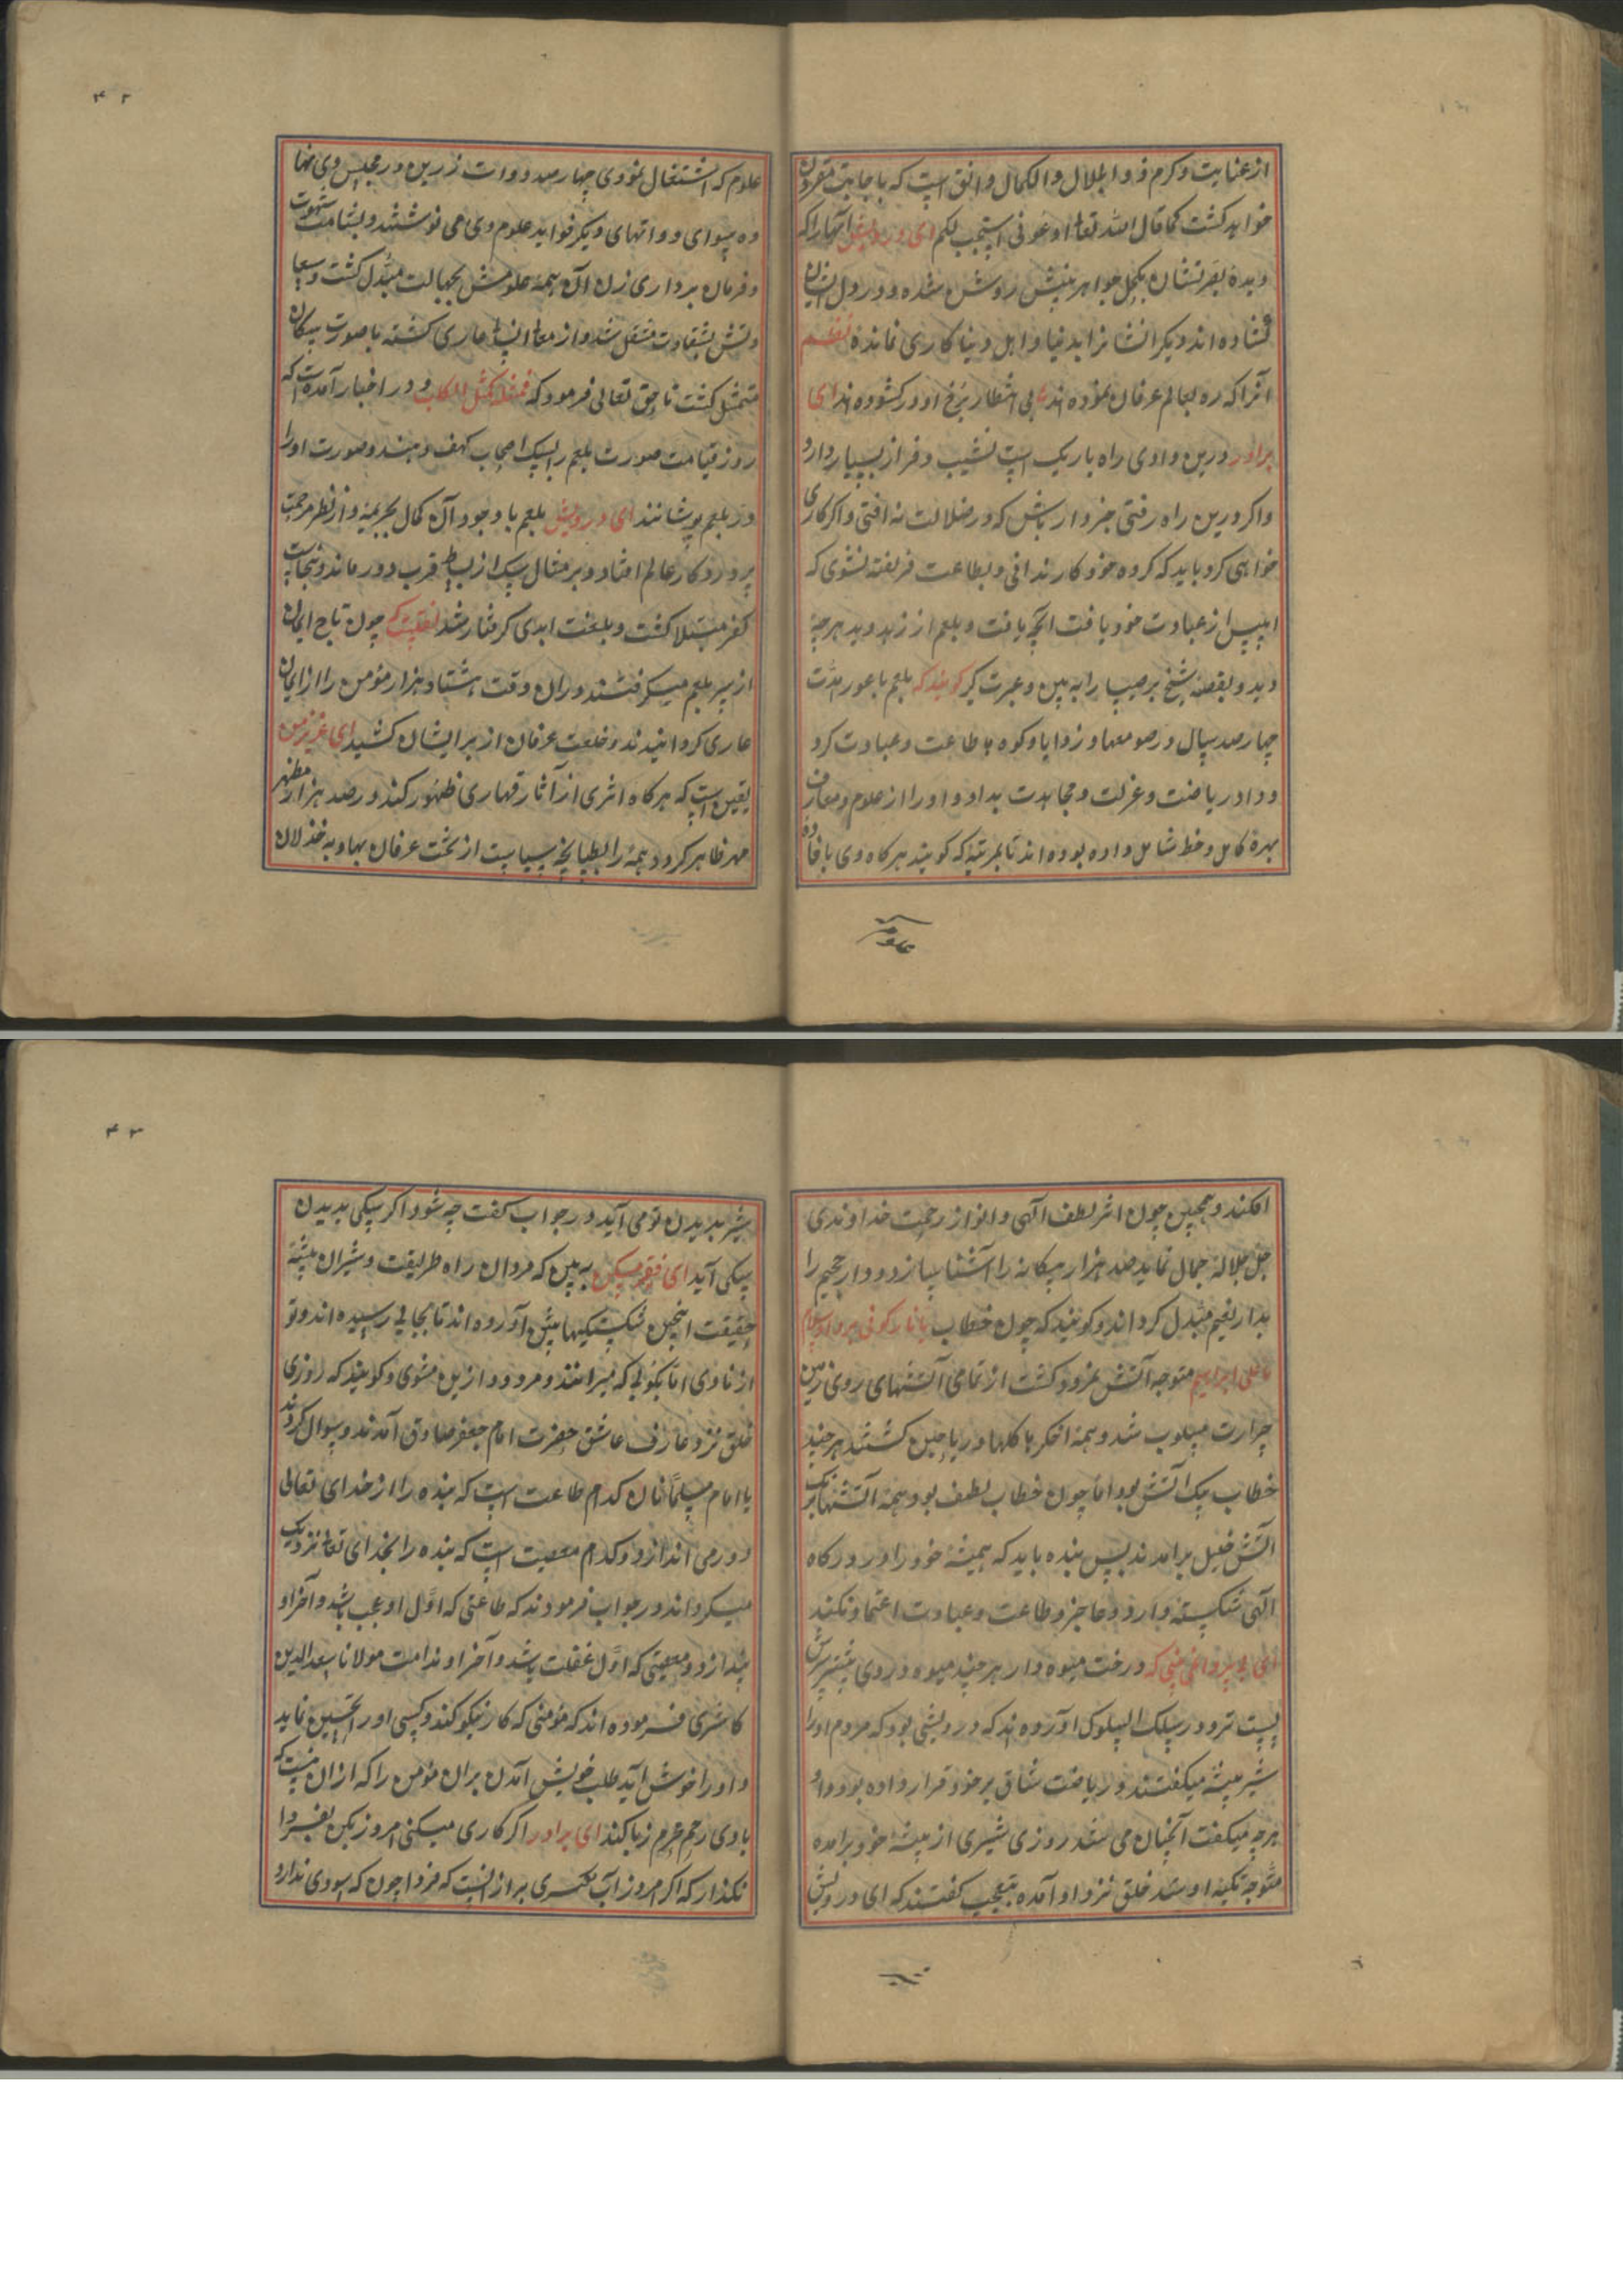 از عنایت و کرم ذو الجلال والکمال واثق است که باجابت مقرون
خواهد گشت کما قال الله تعالی ادعونی استجب لکم ای درویش آنها را که
دیده بصرتشان بکحل جواهر بینش روشن شده و در دل ایشان
گشاده اند دیگر ایشانرا بدنیا و اهل دنیا کاری نمانده نظم
آنرا که ره بعالم عرفان نموده اند بی انتظار بر رخ او در گشوده اند ای
برادر درین وادی راه باریک است نشیب و فراز بسیار دارد
و اگر درین راه رفتی خبردار باش که در ضلالت نه افتی و اگر کاری
خواهی کرد باید که کرده خود کار ندانی و بطاعت فریفته نشوی که
ابلیس از عبادت خود یافت آنچه یافت و بلعم از زهد دید هر چه
دید و بقصه شیخ برصیصا را به بین و عبرت گیر گویند که بلعم باعور مدت
چهار صد سال در صومعها و زوایا و کوه ها طاعت و عبادت کرد
و داد ریاضت و عزلت و مجاهدت بداد و او را از علوم و معارف
بهره کامل و حظ شامل داده بوده اند تا بمرتبه که گویند هر گاه وی بافاده
۴۲
علوم که اشتغال نمودی چهار صد دوات زرین در مجلس وی نهاده
سوای دواتهای دیگر فواید علوم وی می نوشتند و بشامت شهوت
و فرمان برداری زن آن همه علومش بجهالت مبدل گشت و سعادتش
بشقاوت منتقل شد و از معانی عاری گشته با صورت سگان
متمثل گشت تا حق تعالی فرمود که فمثله کمثل الکلب و در اخبار آمده است که
روز قیامت صورت بلعم را بسگ اصحاب کهف دهند و صورت او را
در بلعم پوشانند ای درویش بلعم با وجود آن کمال بجریمه از نظر مرحمت
پروردگار عالم افتاد و بر مثال سگ از بساط قرب دور ماند و بنجاست
کفر مبتلا گشت و بلعنت ابدی گرفتار شد نقلست که چون تاج ایمان
از سر بلعم میگرفتند در آن وقت هشتاد هزار مؤمن را از ایمان
عاری گردانیدند و خلعت عرفان از بر ایشان کشید ای عزیز من
یقین است که هر گاه اثری از آثار قهاری ظهور کند و صد هزار مظهر
مهر ظاهر گردد همه را بطپانچه سیاست از تخت عرفان بهاویه خذلان
افکند و همچنین چون اثر لطف الهی و انوار رحمت خداوندی
جل جلاله جمال نماید صد هزار بیگانه را آشنا سازد و دار جحیم را
بدار نعیم مبدل گرداند و گویند که چون خطاب یا نار کونی بردا وسلاما
علی ابراهیم متوجه آتش نمرود گشت از تمامی آتشهای روی زمین
حرارت مسلوب شد و همه اخگرها گلها و ریاحین گشتند هر چند
خطاب بیک آتش بود اما چون خطاب لطف بود همه آتشها برنک
آتش خلیل برآمدند پس بنده باید که همیشه خود را در درگاه
الهی شکسته دارد و عاجز و طاعت و عبادت اعتماد نکند
ای برادر نمی بینی که درخت میوه دار هر چند میوه در وی بیشتر سرش
پست تر و در سلک السلوک آورده اند که درویشی بود که مردم او را
شیر بیشه میگفتند و ریاضت شاق بر خود قرار داده بود و او
هر چه میگفت آنچنان می شد روزی شیری از بیشه خود برآمده
متوجه تکیه او شد خلق نزد او آمده بتعجب گفتند که ای درویش
۴۳
شیر بدیدن تو می آید در جواب گفت چه شود اگر سگی بدیدن
سگی آید ای فقیر مسکین به بین که مردان راه طریقت و شیران بیشه
حقیقت اینچنین شکستگیها پیش آورده اند تا بجائی رسیده اند و تو
از نادی انا بگوئی که میرانند و مردود ازین میشوی و گویند که روزی
خلق نزد عارف عاشق حضرت امام جعفر صادق آمدند و سوال کردند
یا امام مسلمانان کدام طاعت است که بنده را از خدای تعالی
دور می اندازد و کدام معصیت است که بنده را بخدای تعالی نزدیک
میگرداند در جواب فرمودند که طاعتی که اول او عجب باشد و آخر او
پندار و معصیتی که اول غفلت باشد و آخر او ندامت مولانا سعد الدین
کاشغری فرموده اند که مؤمنی که کار نیکو کند و کسی او را تحسین نماید
و او را خوش آید طلب خویش آمدن بران مؤمن را که ازان نیست که
با وی رحم حرم زنا کند ای برادر اگر کاری میکنی امروز بکن بفردا
نگذار که اگر امروز آب نکسری براز انیست که فردا چون که سودی ندارد